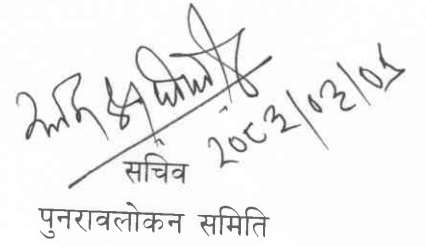 २०८३/०३/०५
सचिव
पुनरावलोकन समिति